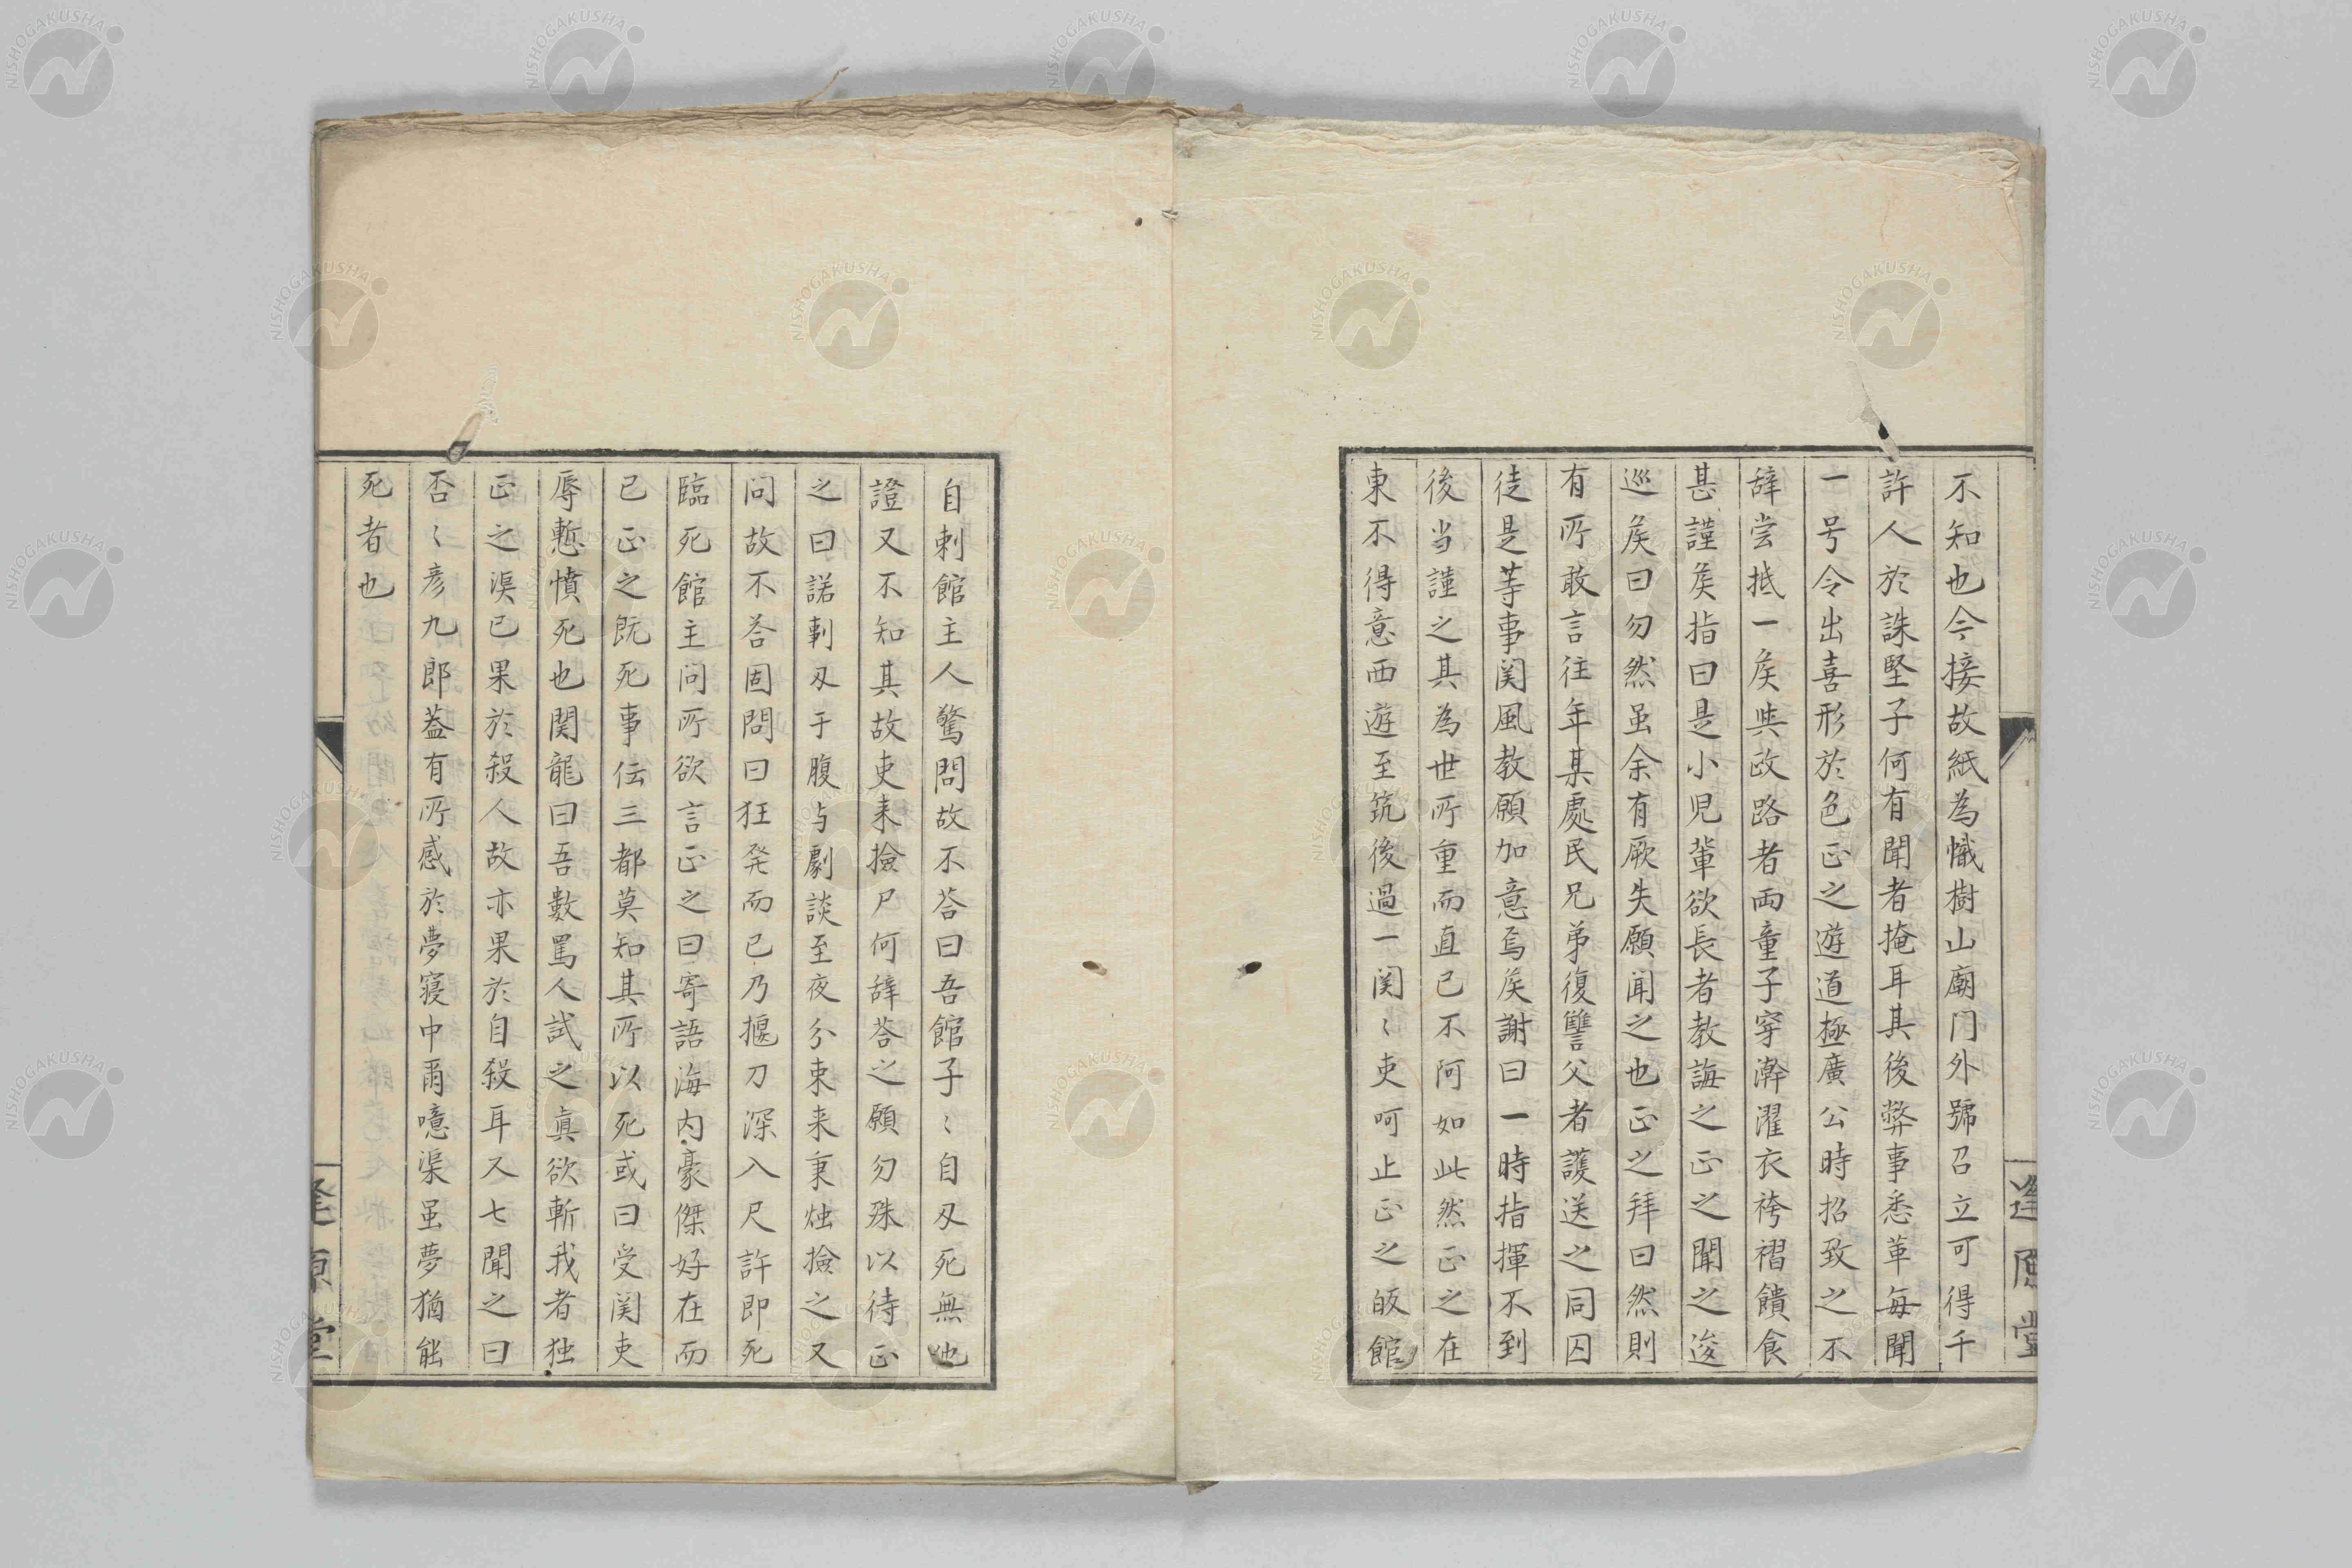 不知也今接故紙為幟樹山廟门外號召立可得千
許人於誅堅子何有聞者掩耳其後弊事悉革每聞
一号令出喜形於色正之遊道極廣公時招致之不
辞尝抵一矦典政路者両童子穿澣濯衣袴褶饋食
甚謹矦指曰是小児輩欲長者教誨之正之聞之逡
巡矦曰勿然虽余有厥失願闻之也正之拜曰然則
有所敢言往年某處民兄弟復讐父者護送之同囚
徒是等事関風教願加意焉矦謝曰一時指揮不到
後当謹之其為世所重而直己不阿如此然正之在
東不得意西遊至筑後過一関〻吏呵止正之皈館
自刺館主人驚問故不荅曰吾館子〻自刄死無他
證又不知其故吏来撿尸何辞荅之願勿殊以待正
之曰諾剚刄于腹与劇談至夜分吏来秉烛撿之又
问故不荅固問曰狂発而已乃揠刀深入尺許即死
臨死館主问所欲言正之曰寄語海内豪傑好在而
已正之既死事伝三都莫知其所以死或曰受関吏
辱慙憤死也関龍曰吾數罵人試之真欲斬我者独
正之渠已果於殺人故亦果於自殺耳又七聞之曰
否〻彦九郎葢有所感於夢寢中爾噫渠虽夢猶能
死者也
逢原堂
逢原堂
NISHOGAKUSHA